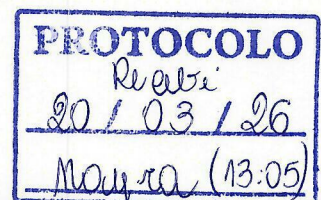 PROTOCOLO
Recebi
20 / 03 / 26
Mayra (13:05)